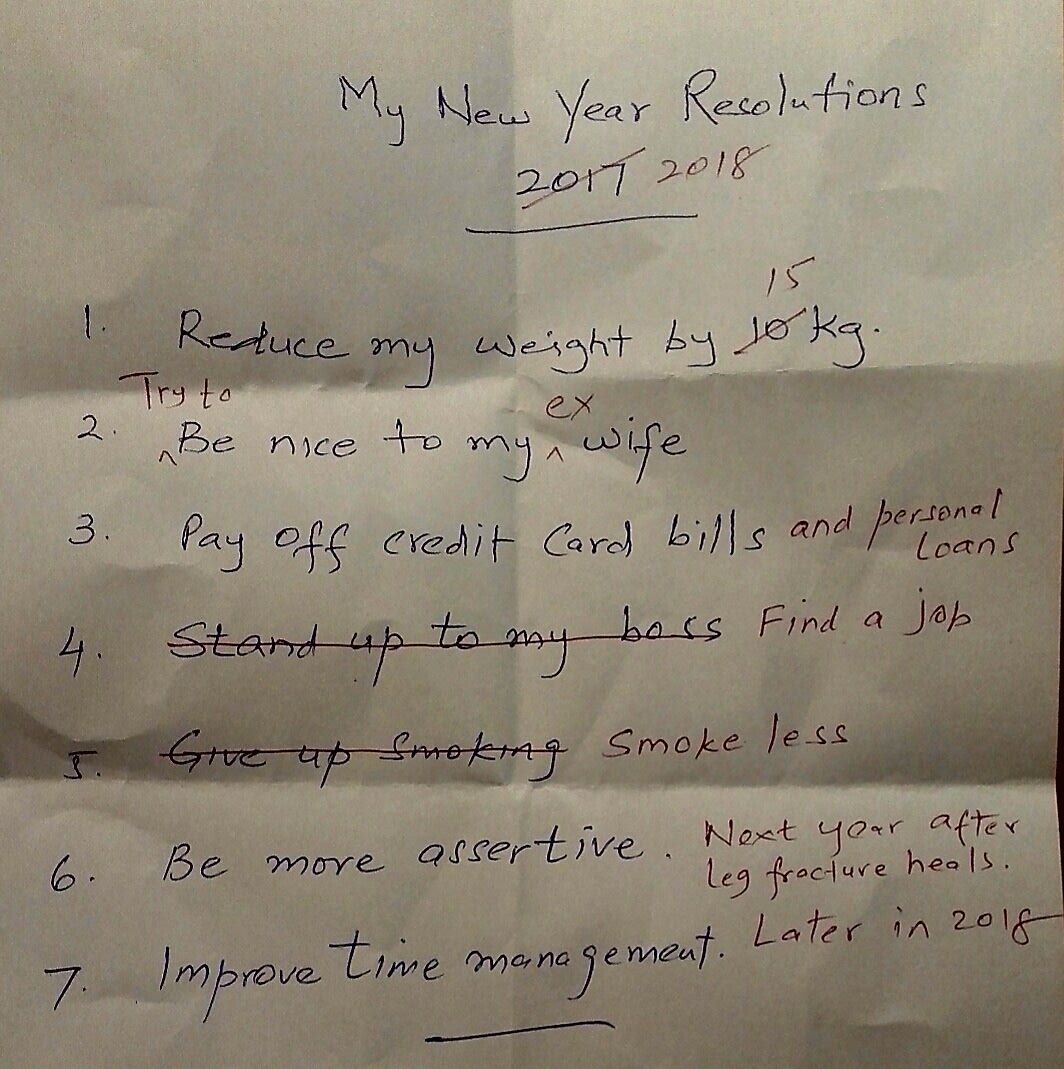 My New Year Resolutions
2017 2018
15
1. Reduce my weight by 10 kg.
Try to ex
2. ^Be nice to my ^ wife
3. Pay off credit Card bills and personal
Loans
4. Stand up to my boss Find a job
5. Give up Smoking Smoke less
6. Be more assertive. Next year after
leg fracture heals.
7. Improve time management. Later in 2018